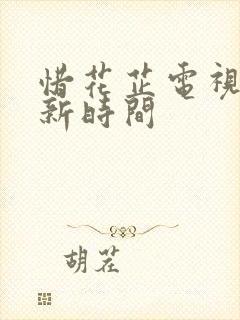 惜花芷電視
新時間
胡茬